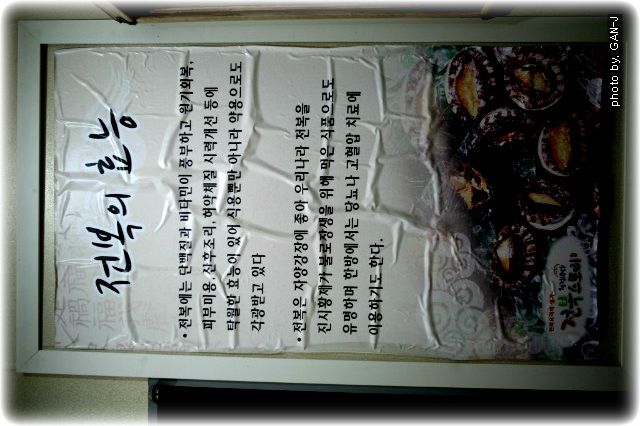 전복의 효능
• 전복에는 단백질과 비타민이 풍부하고 원기회복,
피부미용, 산후조리, 허약체질, 시력개선 등에
탁월한 효능이 있어 식용뿐만 아니라 약용으로도
각광받고 있다
• 전복은 자양강장에 좋아 우리나라 전복을
진시황제가 불로장생을 위해 먹은 식품으로도
유명하며 한방에서는 당뇨나 고혈압 치료에
이용하기도 한다.
photo by. GAN-J